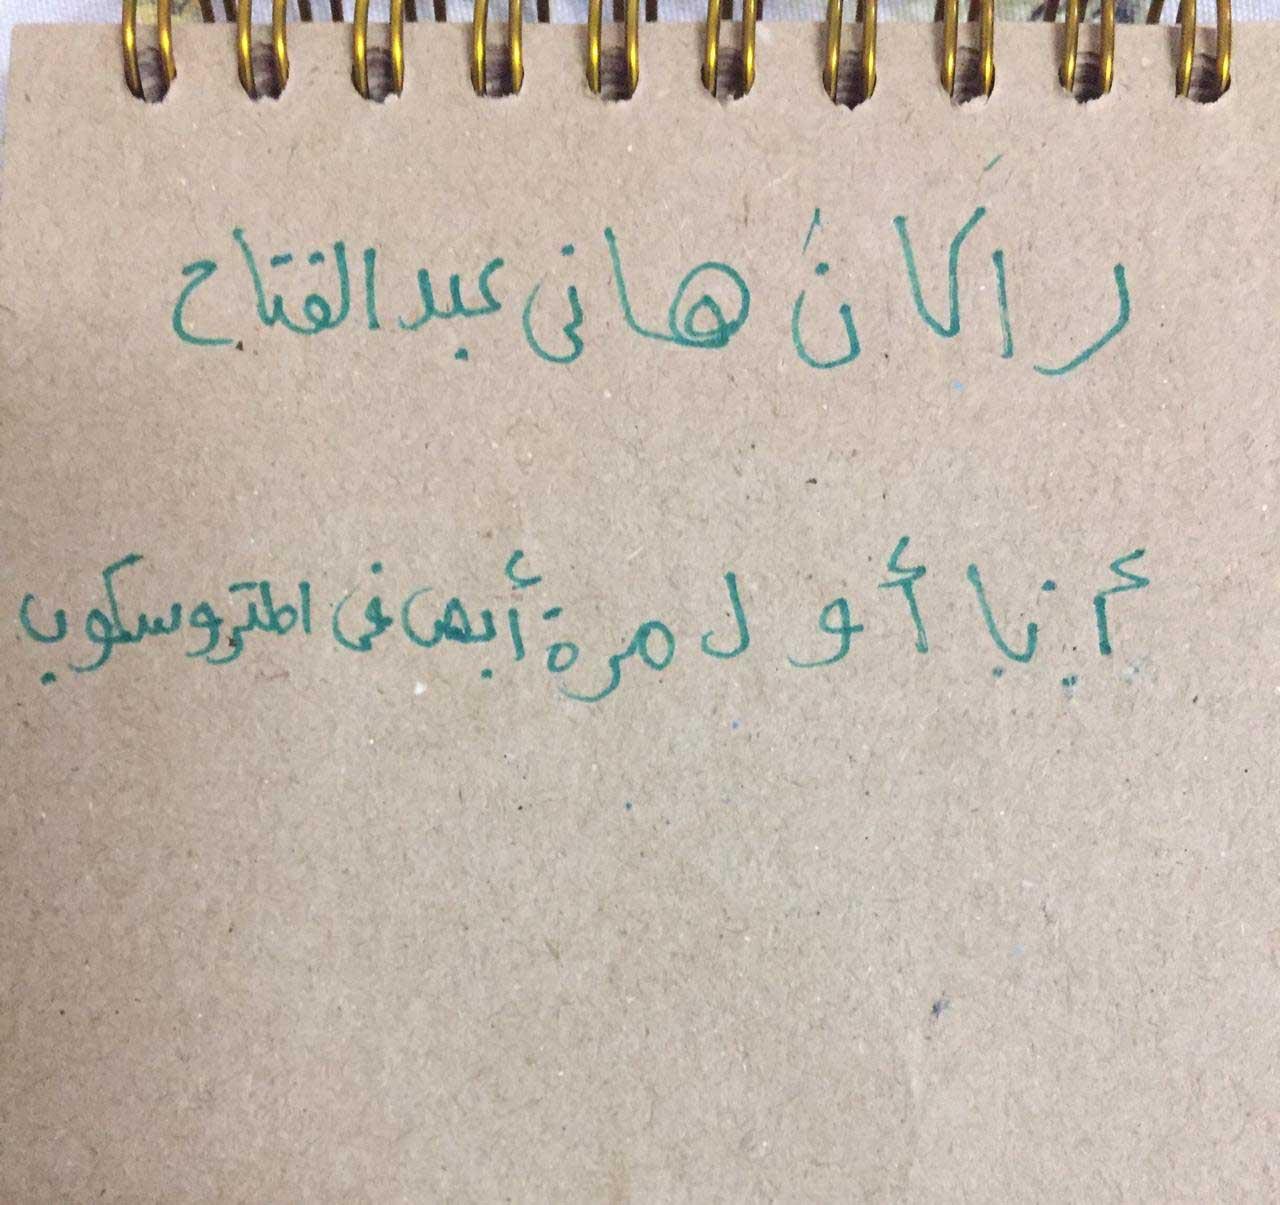 راكَانَ هانى عبد الفتاح
أنا أول مرة أبص فى المتروسكوب